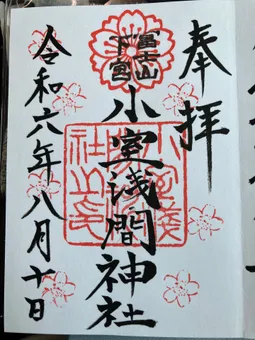 奉拝
富士山
下宮
小室浅間神社
令和六年八月十日